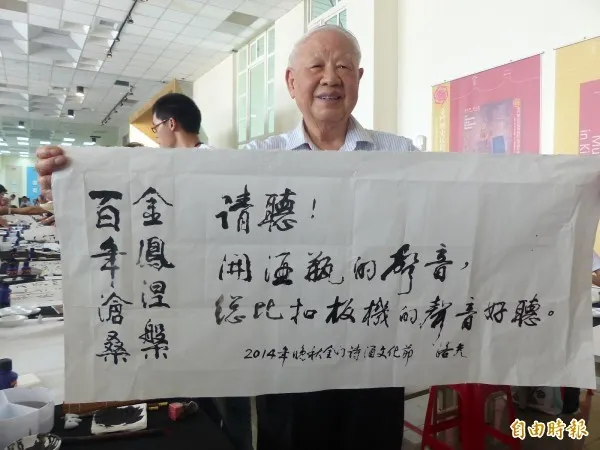 金鳳涅槃
百年滄桑
請聽！
開酒瓶的聲音，
總比扣板機的聲音好聽。
2014年晚秋金门诗酒文化節
自由時報